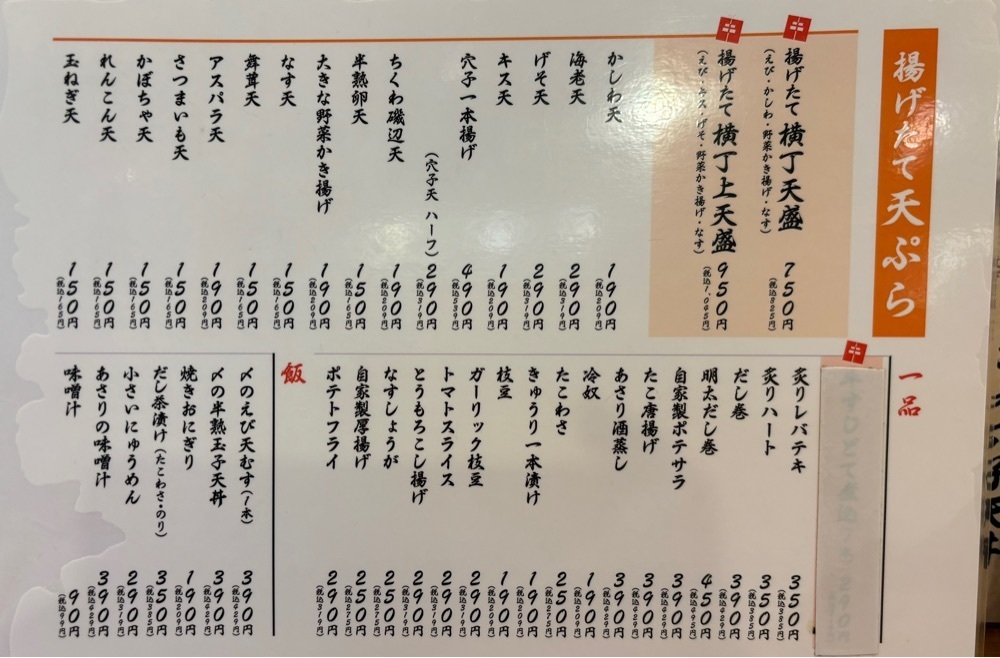 揚げたて天ぷら
揚げたて横丁天盛 750円(税込825円)
(えび・かしわ・野菜かき揚げ・なす)
揚げたて横丁上天盛 950円(税込1,045円)
(えび・キス・げそ・野菜かき揚げ・なす)
かしわ天 190円(税込209円)
海老天 290円(税込319円)
げそ天 290円(税込319円)
キス天 190円(税込209円)
穴子一本揚げ 490円(税込539円)
(穴子天 ハーフ) 290円(税込319円)
ちくわ磯辺天 190円(税込209円)
半熟卵天 150円(税込165円)
大きな野菜かき揚げ 190円(税込209円)
なす天 150円(税込165円)
舞茸天 150円(税込165円)
アスパラ天 190円(税込209円)
さつまいも天 150円(税込165円)
かぼちゃ天 150円(税込165円)
れんこん天 150円(税込165円)
玉ねぎ天 150円(税込165円)
一品
炙りレバテキ 350円(税込385円)
炙りハート 350円(税込385円)
だし巻 390円(税込429円)
明太だし巻 450円(税込495円)
自家製ポテサラ 390円(税込429円)
たこ唐揚げ 390円(税込429円)
あさり酒蒸し 390円(税込429円)
冷奴 190円(税込209円)
たこわさ 250円(税込275円)
きゅうり一本漬け 190円(税込209円)
枝豆 190円(税込209円)
ガーリック枝豆 290円(税込319円)
トマトスライス 290円(税込319円)
とうもろこし揚げ 290円(税込319円)
なすしょうが 250円(税込275円)
自家製厚揚げ 250円(税込275円)
ポテトフライ 290円(税込319円)
飯
〆のえび天むす(1本) 390円(税込429円)
〆の半熟玉子天丼 390円(税込429円)
焼きおにぎり 190円(税込209円)
だし茶漬け(たこわさ・のり) 350円(税込385円)
小さいにゅうめん 290円(税込319円)
あさりの味噌汁 390円(税込429円)
味噌汁 90円(税込99円)